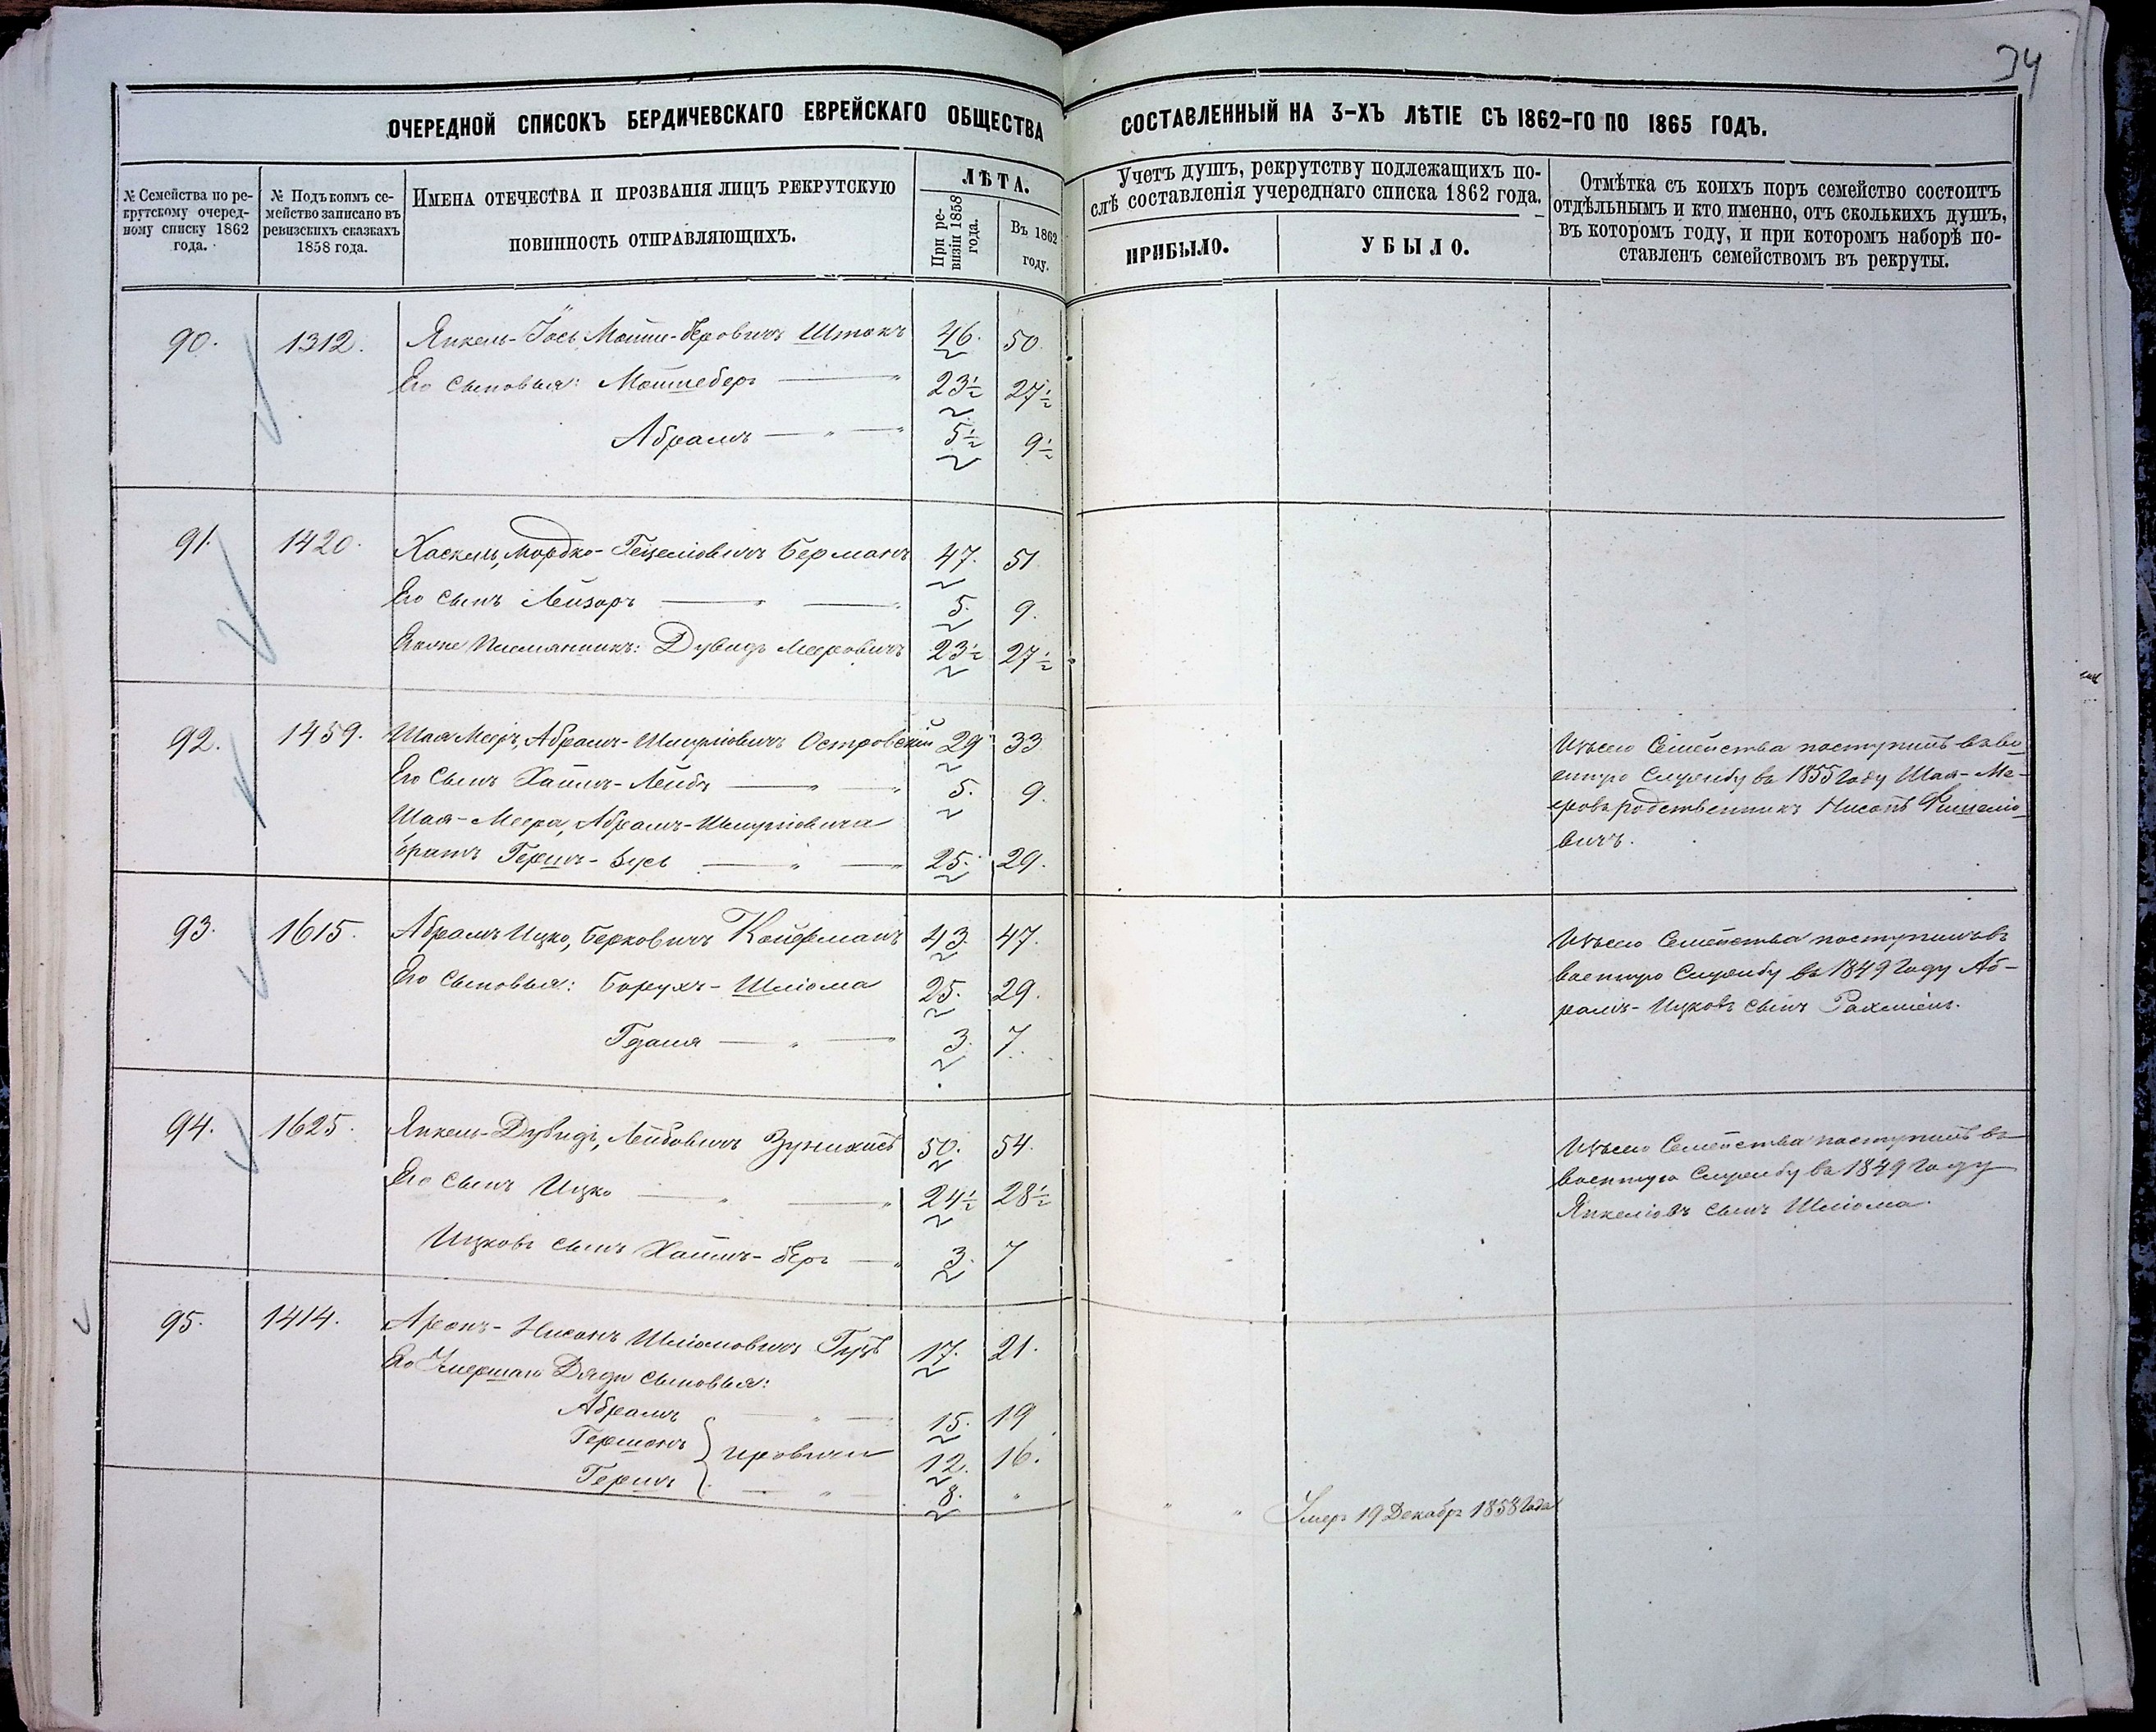 34
ОЧЕРЕДНОЙ СПИСОКЪ БЕРДИЧЕВСКАГО ЕВРЕЙСКАГО ОБЩЕСТВА СОСТАВЛЕННЫЙ НА 3-ХЪ ЛѢТІЕ СЪ 1862-ГО ПО 1865 ГОДЪ.
№ Семейства по ре-
крутскому очеред-
ному списку 1862
года.
№ Подъ коимъ се-
мейство записано въ
ревизскихъ сказкахъ
1858 года.
Имена отечества и прозванія лицъ рекрутскую
повинность отправляющихъ.
ЛѢТА.
При ре-
визіи 1858
года.
Въ 1862
году.
Учетъ душъ, рекрутству подлежащихъ по-
слѣ составленія учереднаго списка 1862 года.
ПРИБЫЛО.
УБЫЛО.
Отмѣтка съ коихъ поръ семейство состоитъ
отдѣльнымъ и кто именно, отъ сколькихъ душъ,
въ которомъ году, и при которомъ наборѣ по-
ставленъ семействомъ въ рекруты.
90. 1312. Янкель-Іось Мошке-Беровичъ Штокъ 46. 50.
Его сыновья: Мошкеберъ — " 23½ 27½
Абрамъ — " — " 5½ 9½
91. 1420. Хаскель, Мордко-Гецеліовичъ Берманъ 47. 51
Его сынъ Лейзоръ — " — " 5. 9.
Племянникъ: Дувидъ Мееровичъ 23½ 27½
92. 1459. Шая Меиръ, Абрамъ-Шмуліовичъ Островскій 29 33
Его сынъ Хаимъ-Лейбъ — " — " 5. 9.
Шая-Меера, Абрамъ-Шмуліовича
братъ Гершъ-Зусь — " — " 25. 29.
Изъ сего Семейства поступилъ въ во-
енную Службу въ 1855 году Шая-Ме-
еровъ родственникъ Нисонъ Фишеліо-
вичъ.
93. 1615. Абрамъ Ицко, Берковичъ Койфманъ 43. 47.
Его сыновья: Борухъ-Шліома 25. 29.
Гдаля — " — " 3. 7.
Изъ сего Семейства поступилъ въ
военную Службу въ 1849 году Аб-
рамъ-Ицковъ сынъ Рахміель.
94. 1625. Янкель-Дувидъ, Лейбовичъ 50. 54.
Его сынъ Ицко — " — " 24½ 28½
Ицковъ сынъ Хаимъ-Беръ — " 3. 7
Изъ сего Семейства поступилъ въ
военную Службу въ 1849 году
Янкеліовъ сынъ Шліома.
95. 1414. Аронъ-Нисонъ Шліомовичъ 17. 21.
Его Умершаго Дяди сыновья:
Абрамъ — " — 15. 19
Гершонъ } Ировичи 12. 16.
Гершъ — " — 8. "
" " Умеръ 19 Декабр 1858 года